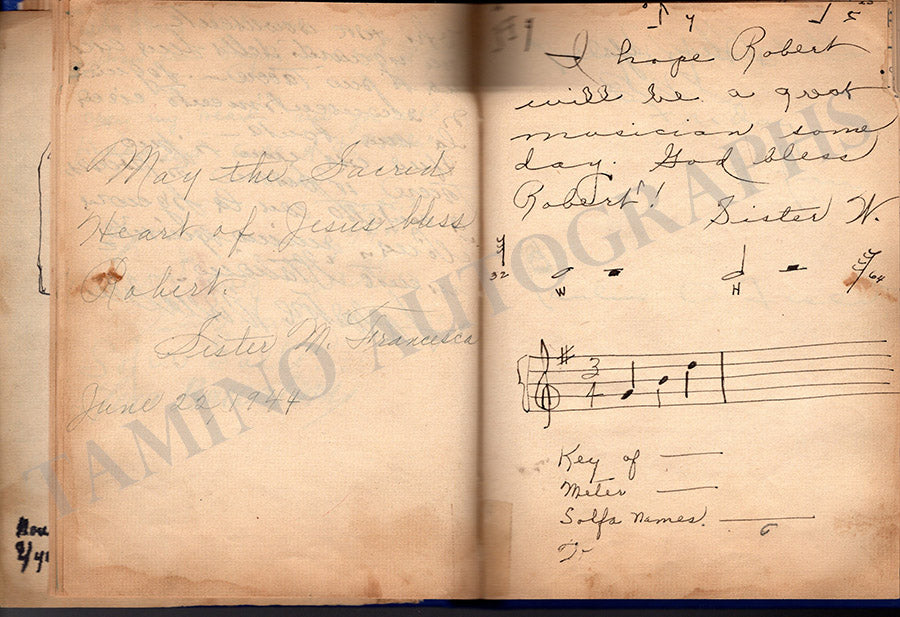 May the Sacred
Heart of Jesus bless
Robert.
Sister M. Francesca
June 22, 1944
I hope Robert
will be a great
musician some
day. God bless
Robert!
Sister W.
32
W
H
64
3
4
Key of
Meter
Solfa names.
TAMINO AUTOGRAPHS